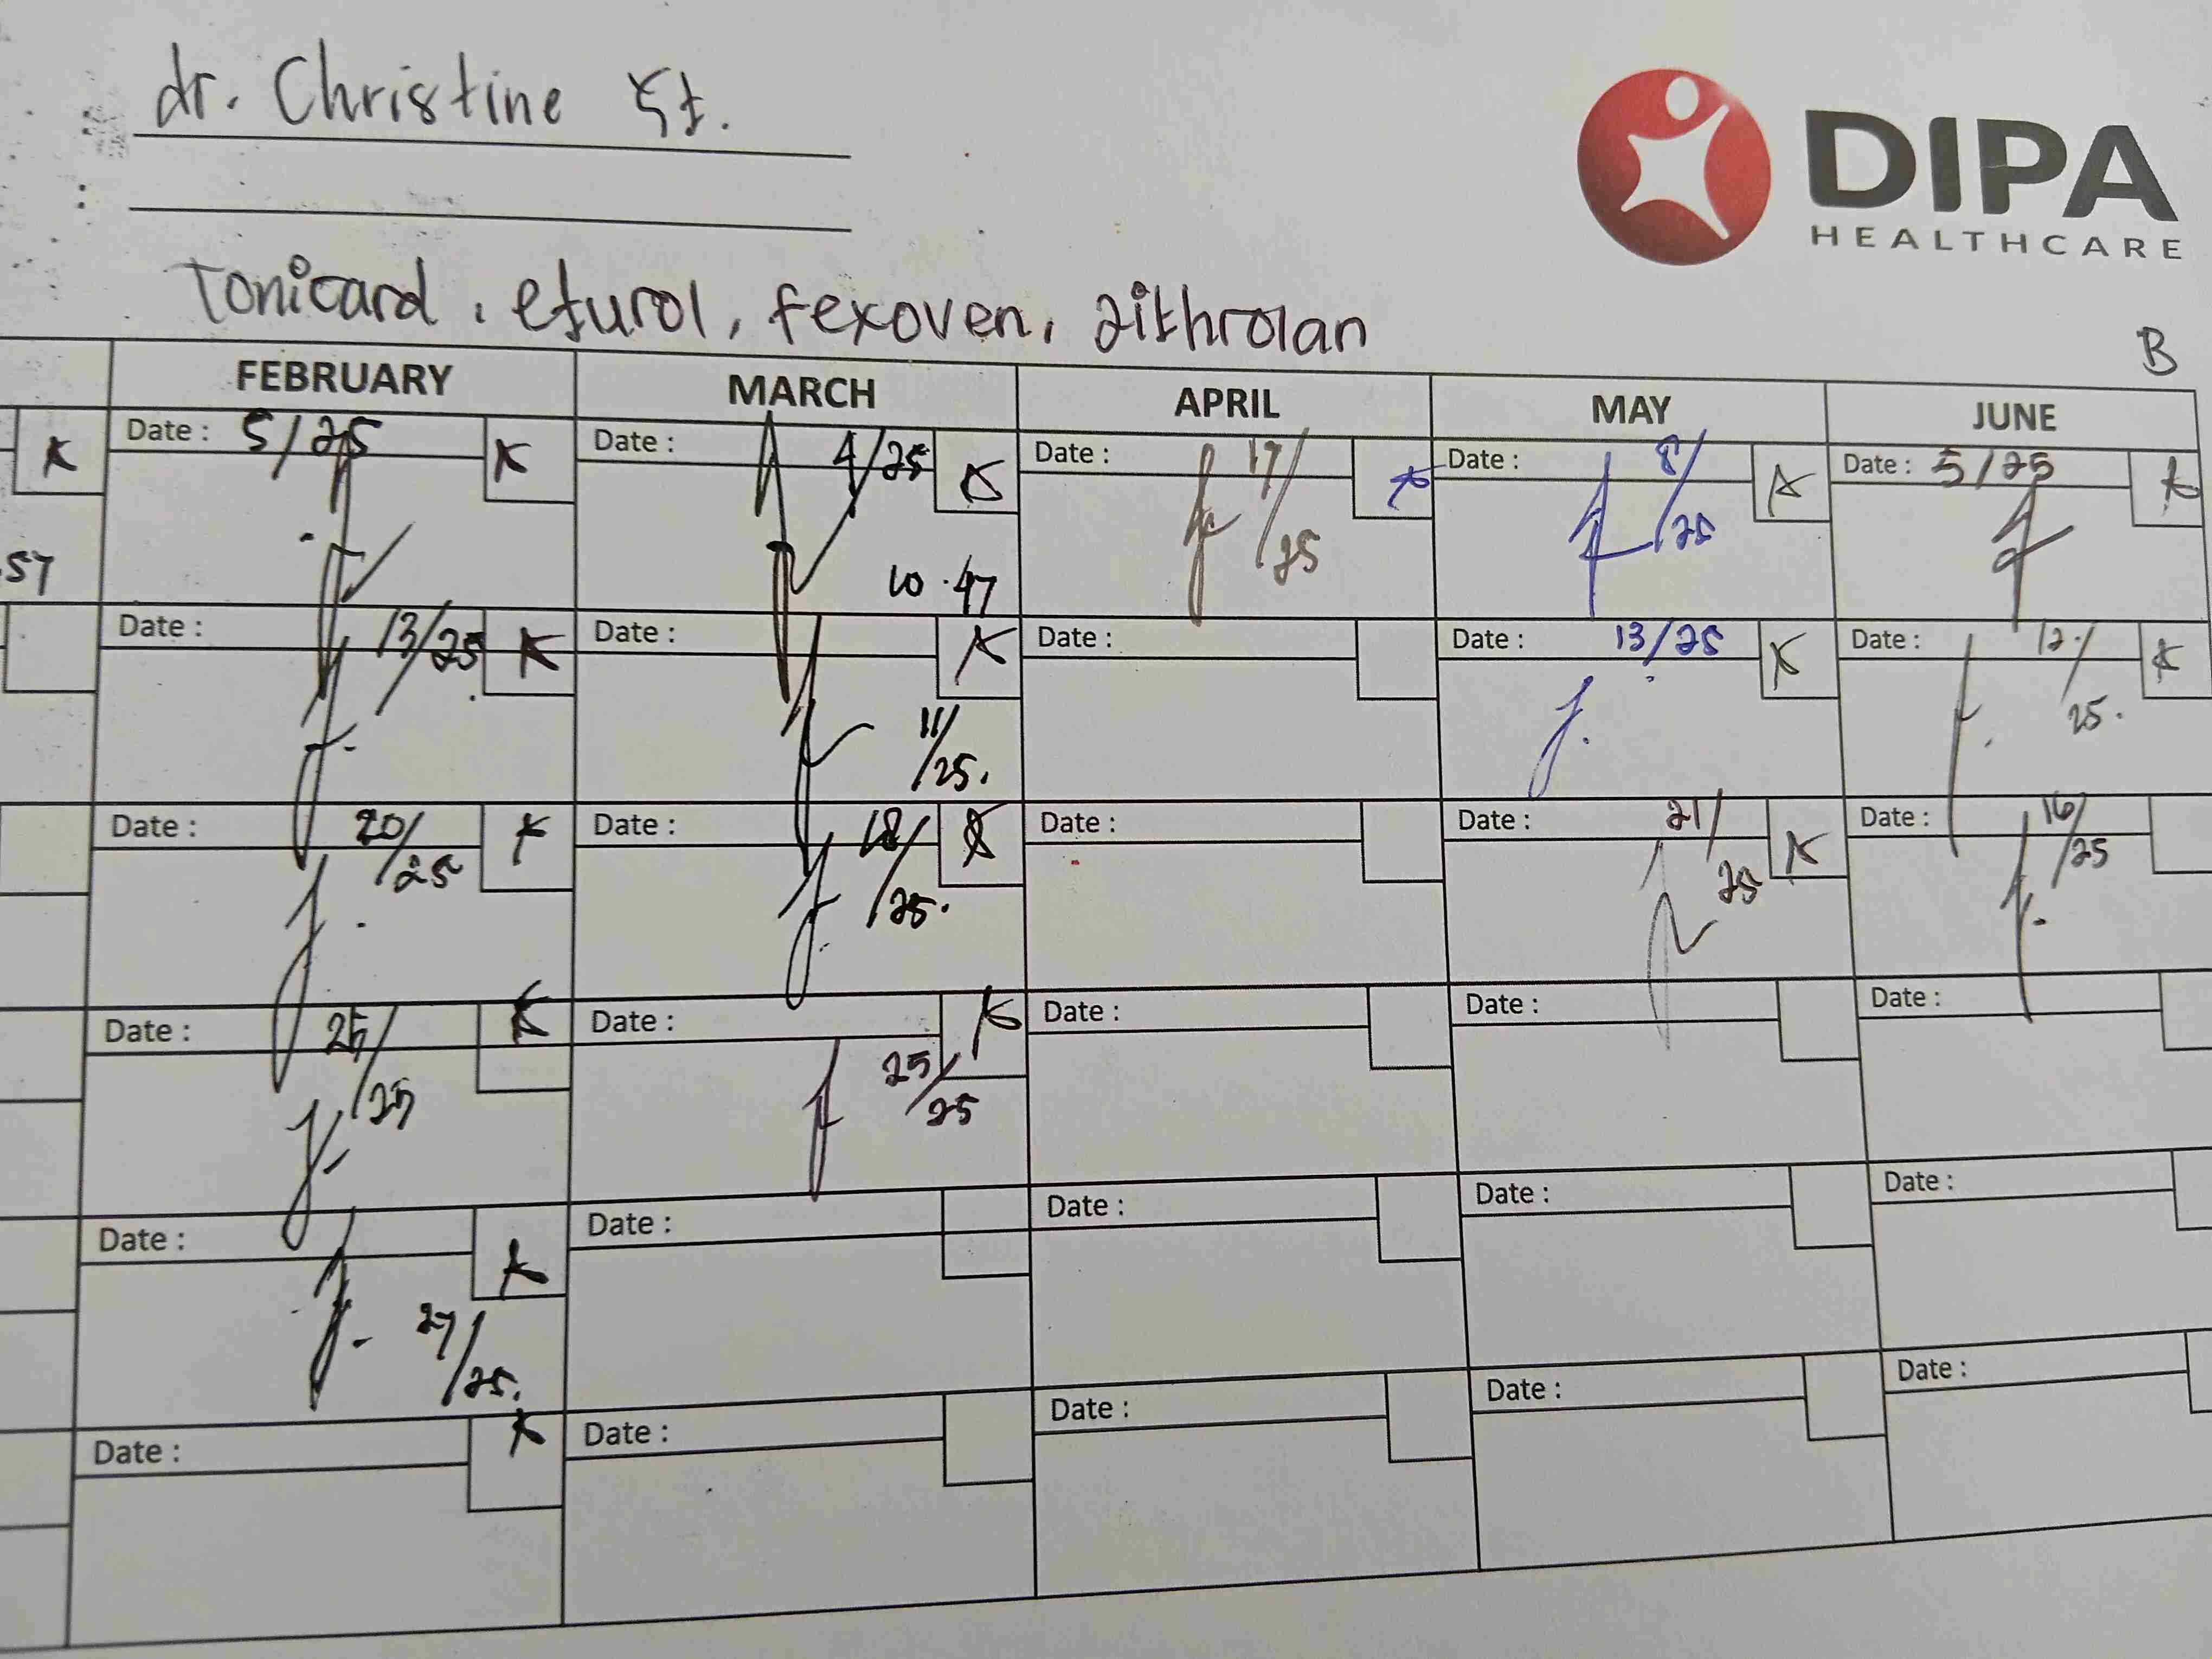 dr. Christine
DIPA
HEALTHCARE
:
:
Tonicard, efurol, fexoven, zithrolan
B
FEBRUARY MARCH APRIL MAY JUNE
K Date : 5/25 K Date : 4/25 K Date : 17/25 K Date : 8/25 K Date : 5/25 K
57 10.47
Date : 13/25 K Date : 11/25. K Date : Date : 13/25 K Date : 12/25. K
Date : 20/25 K Date : 18/25. K Date : Date : 21/25 K Date : 16/25
Date : 25/25 K Date : 25/25 K Date : Date : Date :
Date : 27/25. K Date : Date : Date : Date :
Date : K Date : Date : Date : Date :